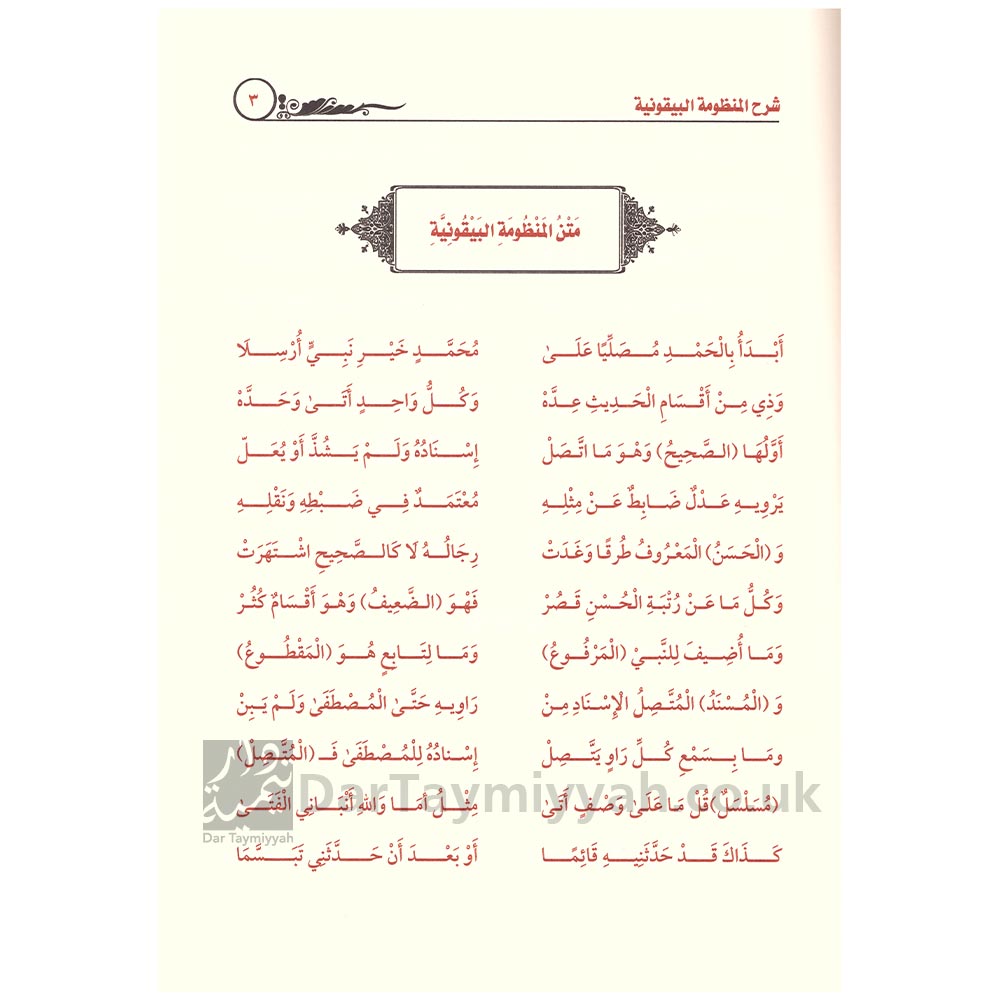 شرح المنظومة البيقونية
٣
مَتْنُ المَنْظُومَةِ البَيْقُونِيَّةِ
أَبْدَأُ بِالْحَمْدِ مُصَلِّيًا عَلَىٰ مُحَمَّدٍ خَيْرِ نَبِيٍّ أُرْسِلَا
وَذِي مِنْ أَقْسَامِ الْحَدِيثِ عِدَّهْ وَكُلُّ وَاحِدٍ أَتَىٰ وَحَدَّهْ
أَوَّلُهَا (الصَّحِيحُ) وَهْوَ مَا اتَّصَلْ إِسْنَادُهُ وَلَمْ يَشُذَّ أَوْ يُعَلّ
يَرْوِيهِ عَدْلٌ ضَابِطٌ عَنْ مِثْلِهِ مُعْتَمَدٌ فِي ضَبْطِهِ وَنَقْلِهِ
وَ (الْحَسَنُ) الْمَعْرُوفُ طُرقًا وَغَدَتْ رِجَالُهُ لَا كَالصَّحِيحِ اشْتَهَرَتْ
وَكُلُّ مَا عَنْ رُتْبَةِ الْحُسْنِ قَصُرْ فَهْوَ (الضَّعِيفُ) وَهْوَ أَقْسَامٌ كُثُرْ
وَمَا أُضِيفَ لِلنَّبِيْ (الْمَرْفُوعُ) وَمَا لِتَابِعٍ هُوَ (الْمَقْطُوعُ)
وَ (الْمُسْنَدُ) الْمُتَّصِلُ الْإِسْنَادِ مِنْ رَاوِيهِ حَتَّىٰ الْمُصْطَفَىٰ وَلَمْ يَبِنْ
ومَا بِسَمْعِ كُلِّ رَاوٍ يَتَّصِلْ إِسْنادُهُ لِلْمُصْطَفَىٰ فَـ (الْمُتَّصِلْ)
(مُسَلْسَلٌ) قُلْ مَا عَلَىٰ وَصْفٍ أَتَىٰ مِثْلُ أَمَا وَاللهِ أَنْبَانِي الْفَتَىٰ
كَذَاكَ قَدْ حَدَّثَنِيهِ قَائِمًا أَوْ بَعْدَ أَنْ حَدَّثَنِي تَبَسَّمَا
دار تيمية
Dar Taymiyyah
DarTaymiyyah.co.uk